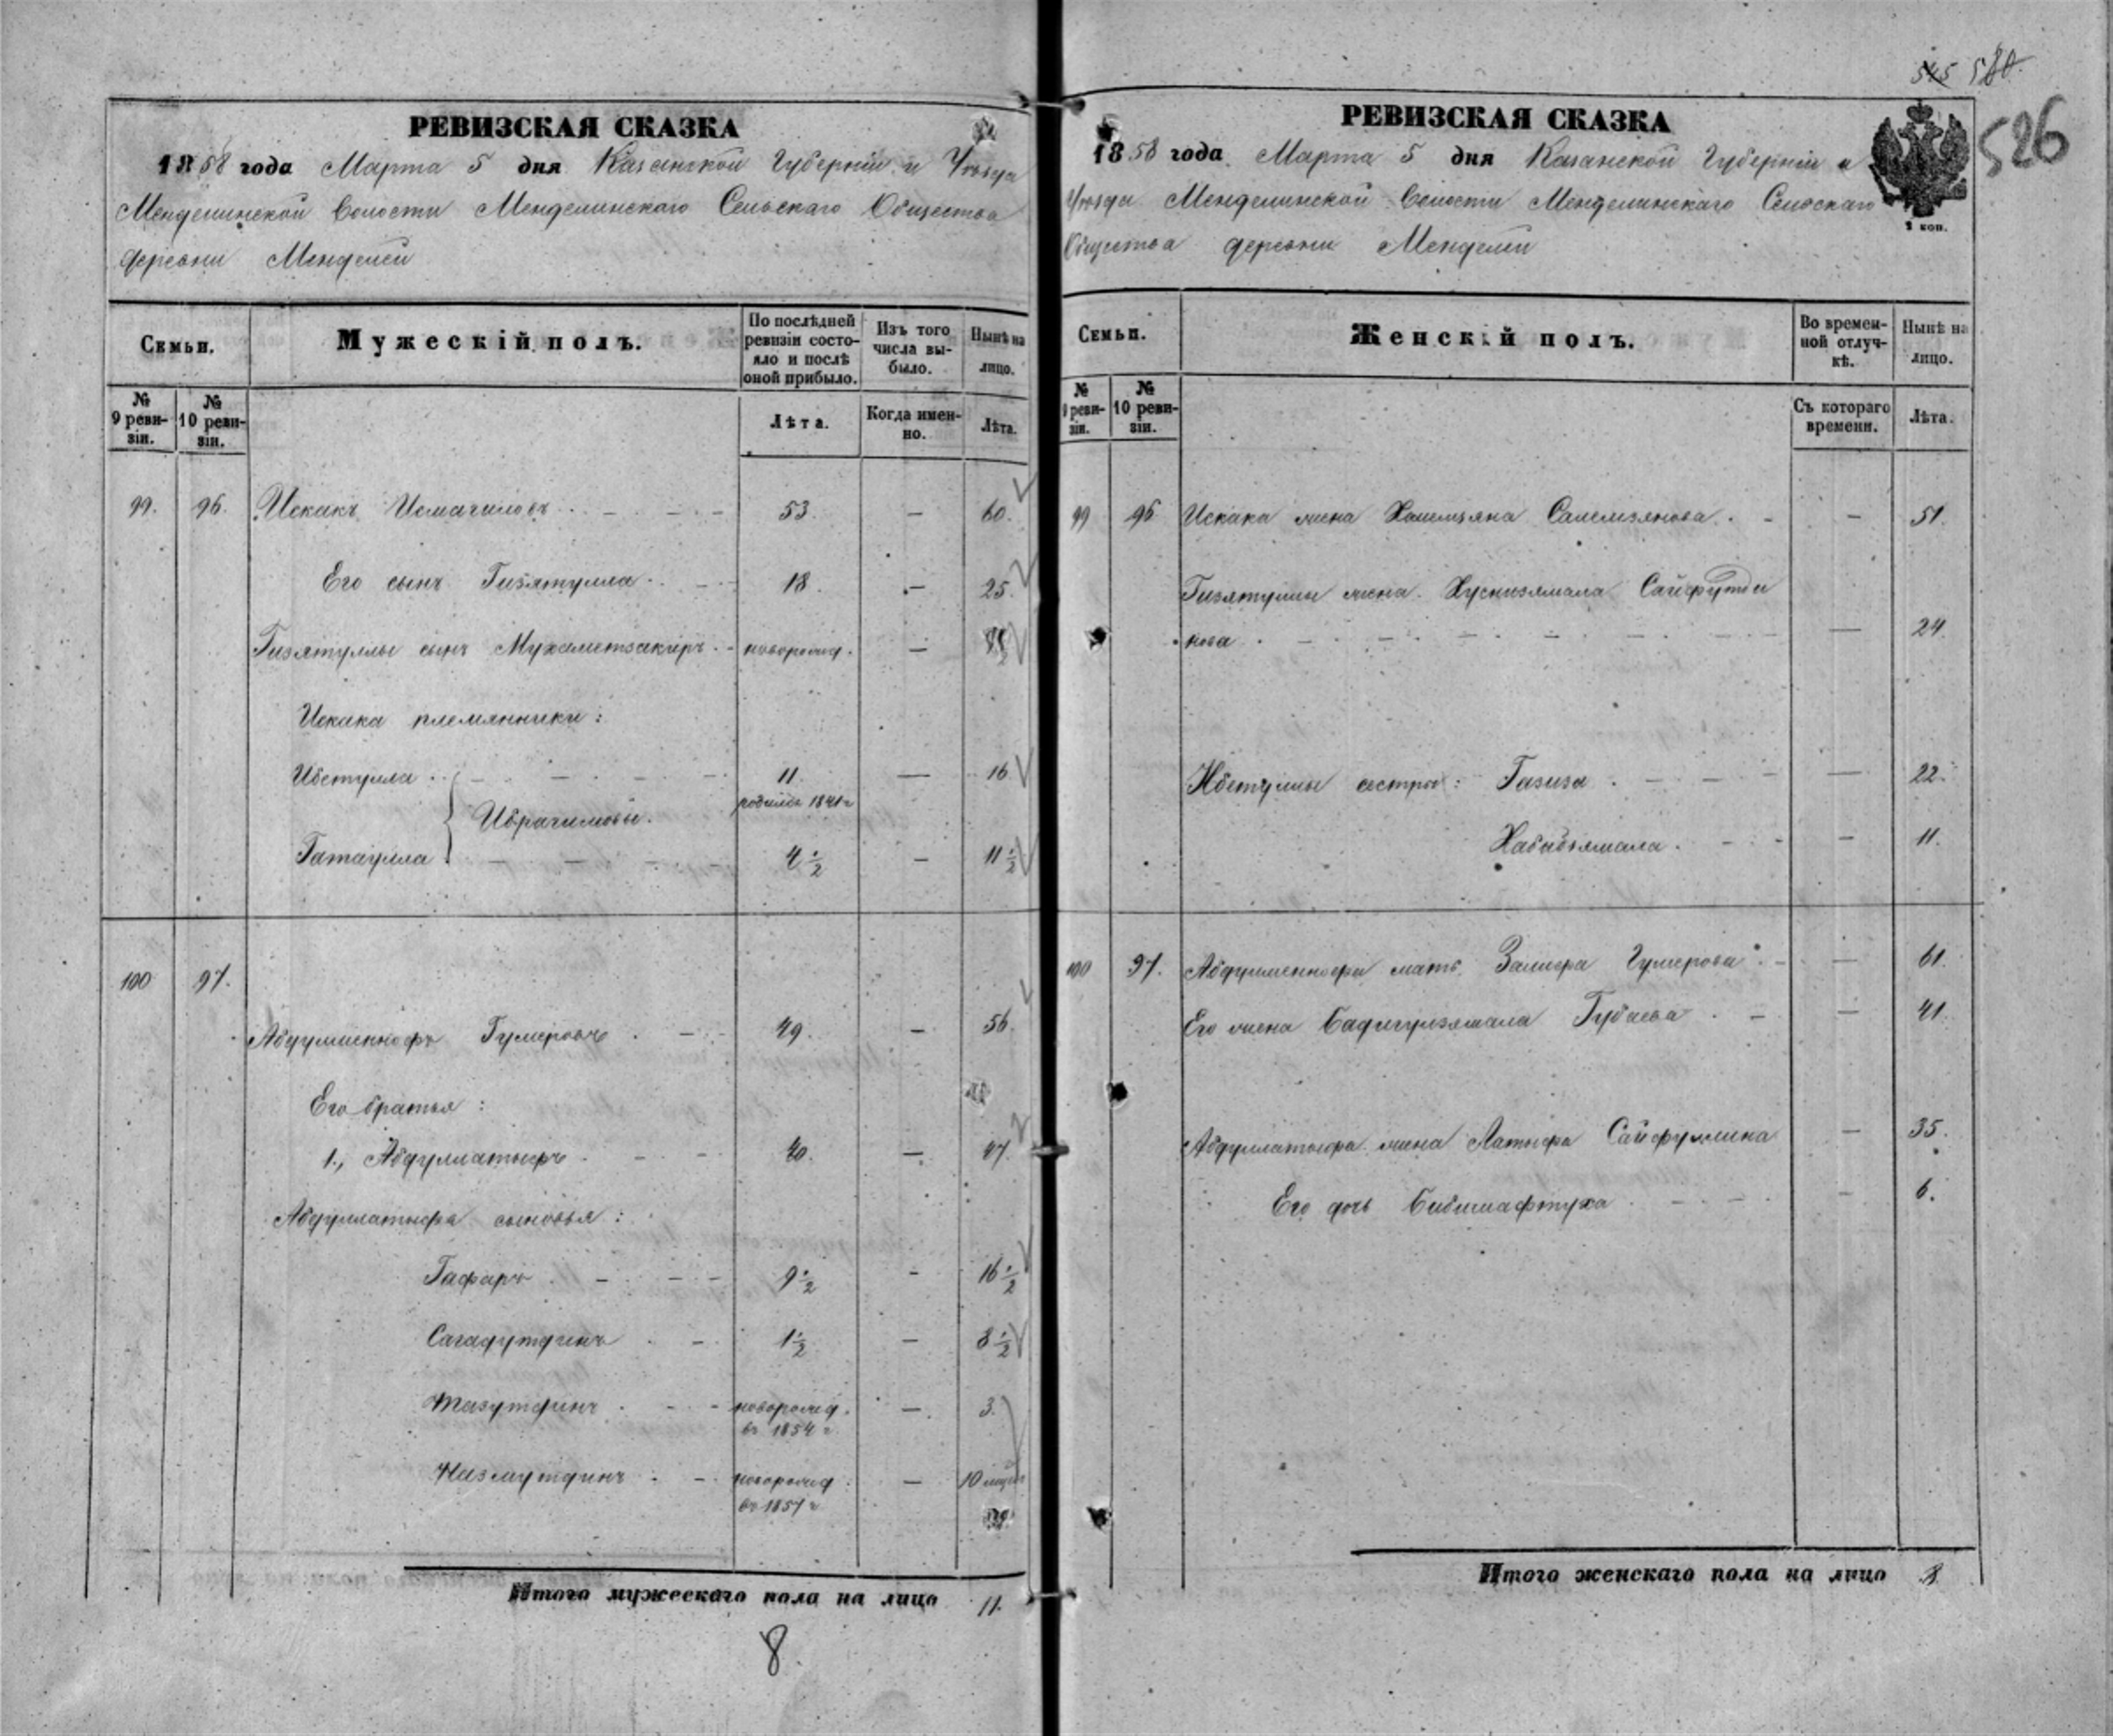 545 580.
526
РЕВИЗСКАЯ СКАЗКА
1858 года Марта 5 дня Казанской Губерніи и Уѣзда
Менделинской Волости Менделинскаго Сельскаго Общества
деревни Менделей
Семьи.
Мужескій полъ.
По послѣдней ревизіи состояло и послѣ оной прибыло.
Изъ того числа выбыло.
Нынѣ на лицо.
№ 9 ревизіи.
№ 10 ревизіи.
Лѣта.
Когда именно.
Лѣта.
99. 96. Искакъ Исмагиловъ 53. — 60.
Его сынъ Гизятулла 18. — 25.
Гизятуллы сынъ Мухаметзакиръ новорожд. —
Искака племянники:
Ибетулла 11. — 16.
родился 1841 г
Ибрагимовы.
Гатаулла 4 1/2 — 11 1/2
100 97.
Абдулменнофъ Гумеровъ 49. — 56.
Его братья:
1., Абдуллатыфъ 40. — 47.
Абдуллатыфа сыновья:
Гафаръ 9 1/2 — 16 1/2
Сагадутдинъ 1 1/2 — 8 1/2
новорожд. — 3.
въ 1854 г
Низмутдинъ новорожд — 10 мѣс
въ 1857 г
Итого мужескаго пола на лицо 11.
8.
РЕВИЗСКАЯ СКАЗКА
1858 года Марта 5 дня Казанской Губерніи и
Уѣзда Менделинской Волости Менделинскаго Сельскаго
Общества деревни Менделей
1 коп.
Семьи.
Женскій полъ.
Во временной отлучкѣ.
Нынѣ на лицо.
№ 9 ревизіи.
№ 10 ревизіи.
Съ котораго времени.
Лѣта.
99 96 Искака жена Салемзянова — 51.
Гизятуллы жена Хуснизямала Сайфутди
нова — 24.
Ибетуллы сестры: Газиза — 22.
Хабибзямала — 11.
100 97. Абдулменнофа мать Гумерова — 61.
Его жена Бадигулзямала Губаева — 41.
Абдуллатыфа жена Латыфа Сайфуллина — 35.
Его дочь Бибишафтуха — 6.
Итого женскаго пола на лицо 8